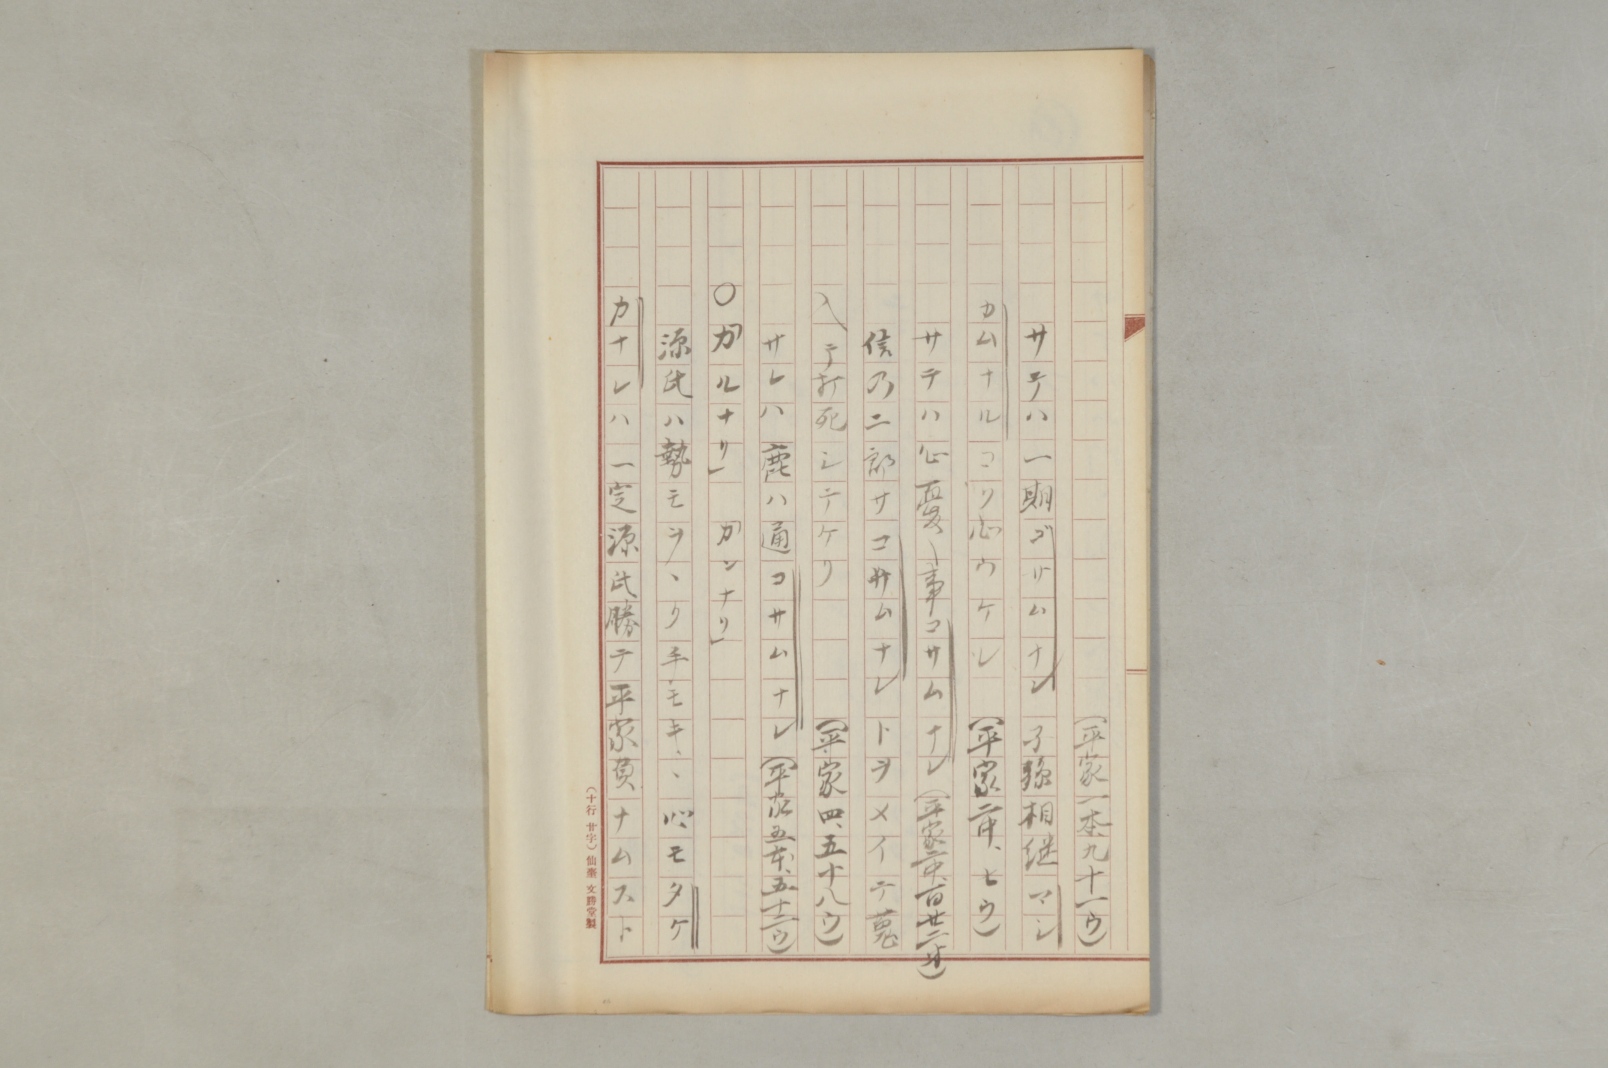 (平家一本、九十一ウ)
サテハ一期ゴサムナレ 子孫相継マシ
カムナルコリ心ウケレ (平家二中、七ウ)
サテハ心
事コサムナレ (平家二中、百廿二オ)
候乃二郎サコサムナレトヲメイテ
入テ打死シテケリ (平家四、五十八ウ)
サレハ鹿ハ通コサムナレ (平家五本、五十二ウ)
○「カルナリ」「カンナリ」
源氏ハ勢モヲヽクキモキヽ心モタケ
カナレハ一定源氏勝テ平家負ナムスト
(十行 廿字) 仙臺 文勝堂製